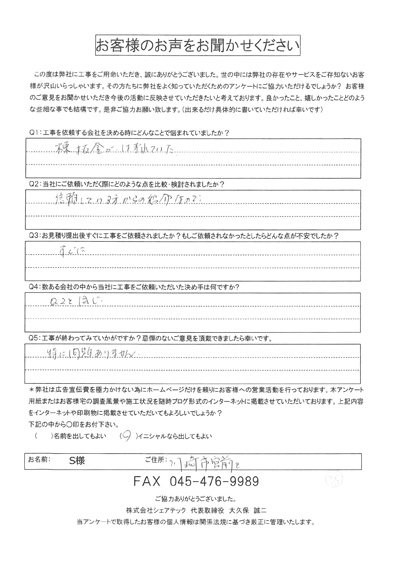 お客様のお声をお聞かせください
この度は弊社に工事をご用命いただき、誠にありがとうございました。世の中には弊社の存在やサービスをご存知ないお客
様が沢山いらっしゃいます。その方たちに弊社をよく知っていただくためのアンケートにご協力いただけるでしょうか？ お客様
のご意見をお聞かせいただき今後の活動に反映させていただきたいと考えております。良かったこと、嬉しかったことどのよう
な些細な事でも結構です。是非ご協力お願い致します。（出来るだけ具体的に書いていただければ幸いです）
Q1：工事を依頼する会社を決める時にどんなことで悩まれていましたか？
棟板金がはずれていた
Q2：当社にご依頼いただく際にどのような点を比較・検討されましたか？
信頼している方からの紹介なので
Q3：お見積り提出後すぐに工事をご依頼されましたか？もしご依頼されなかったとしたらどんな点が不安でしたか？
すぐに
Q4：数ある会社の中から当社に工事をご依頼いただいた決め手は何ですか？
Q2と同じ
Q5：工事が終わってみていかがですか？忌憚のないご意見を頂戴できましたら幸いです。
特に問題ありません
＊弊社は広告宣伝費を極力かけない為にホームページだけを頼りにお客様への営業活動を行っております。本アンケート
用紙またはお客様宅の調査風景や施工状況を随時ブログ形式のインターネットに掲載させていただいております。上記内容
をインターネットや印刷物に掲載させていただいてもよろしいでしょうか？
下記の中から○印をお付下さい。
（ ）名前を出してもよい （○）イニシャルなら出してもよい
お名前： S様 ご住所： 川崎市宮前区
FAX 045-476-9989
ご協力ありがとうございました。
株式会社シェアテック 代表取締役 大久保 誠二
当アンケートで取得したお客様の個人情報は関係法規に基づき厳正に管理いたします。